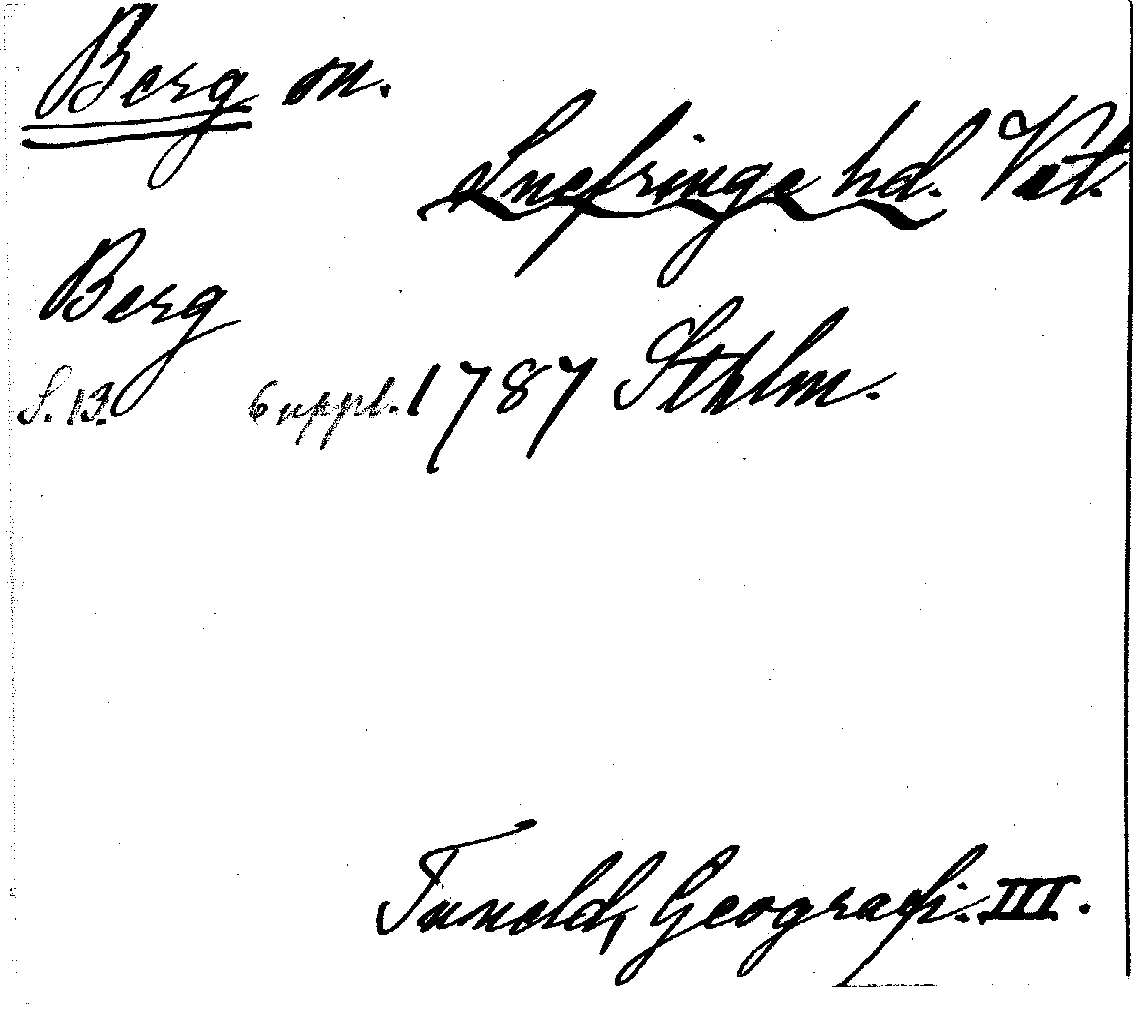 Berg sn.
Snefringe hd. Vstm.
Berg
S. 13. Suppl. 1787 Sthlm.
Tuneld, Geografi. III.